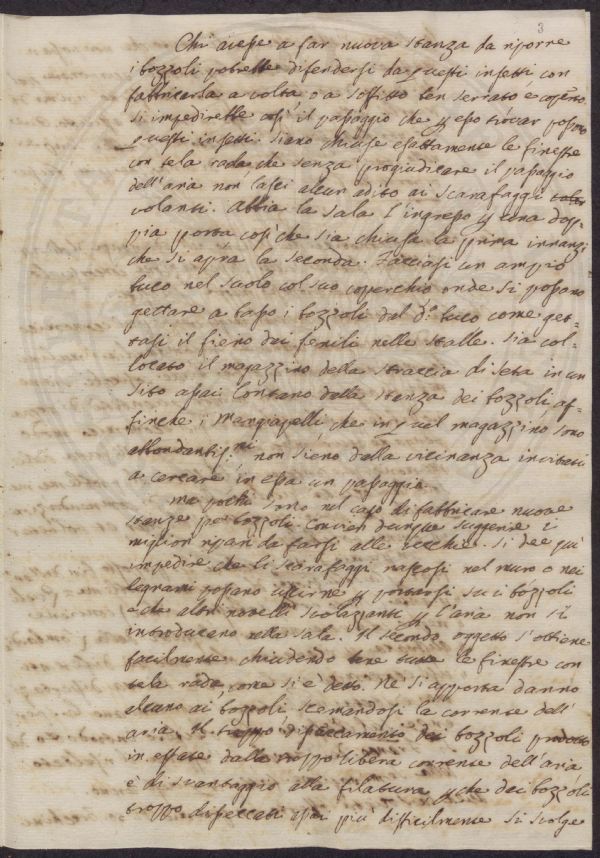 3
Chi avesse a far nuova stanza da riporre
i bozzoli potrebbe difendersi da questi insetti con
fabbricarla a volta, o a soffitto ben serrato e coperto
si impedirebbe così il passaggio che per esso trovar possono
questi insetti. Siano chiuse esattamente le finestre
con tela rada, che senza progiudicare il passaggio
dell'aria non lasci alcun adito ai scarafaggi
volanti. Abbia la sala l'ingresso per una dop-
pia porta così che sia chiusa la prima innanzi
che si apra la seconda. Facciasi un ampio
buco nel suolo col suo coperchio onde si possano
gettare a basso i bozzoli dal do. buco come get-
tasi il fieno dai fenili nelle stalle. Sia col-
locato il magazzino della straccia di seta in un
sito assai lontano dalla stanza dei bozzoli af-
finche i Mangiapelli, che in quel magazzino sono
abbondantissmi, non sieno dalla vicinanza invitati
a cercare in essa un passaggio.
ma pochi sono nel caso di fabbricare nuove
stanze pe' bozzoli. Convien dunque suggerire i
migliori ripari da farsi alle vecchie. Si dee quì
impedire che li scarafaggi nascosi nel muro o nei
legnami possano uscirne per portarsi su i bozzoli
e che altri novelli svolazzanti per l'aria non si
introducano nella sala. Il secondo oggetto s'ottiene
facilmente chiudendo bene tutte le finestre con
tela rada, come si è detto. Ne si apporta danno
alcuno ai bozzoli scemandosi la corrente dell'
aria. Il troppo disseccamento dei bozzoli prodotto
in estate dalla troppo libera corrente dell'aria
è di svantaggio alla filatura, che dei bozzoli
troppo disseccati assai più difficilmente si svolge